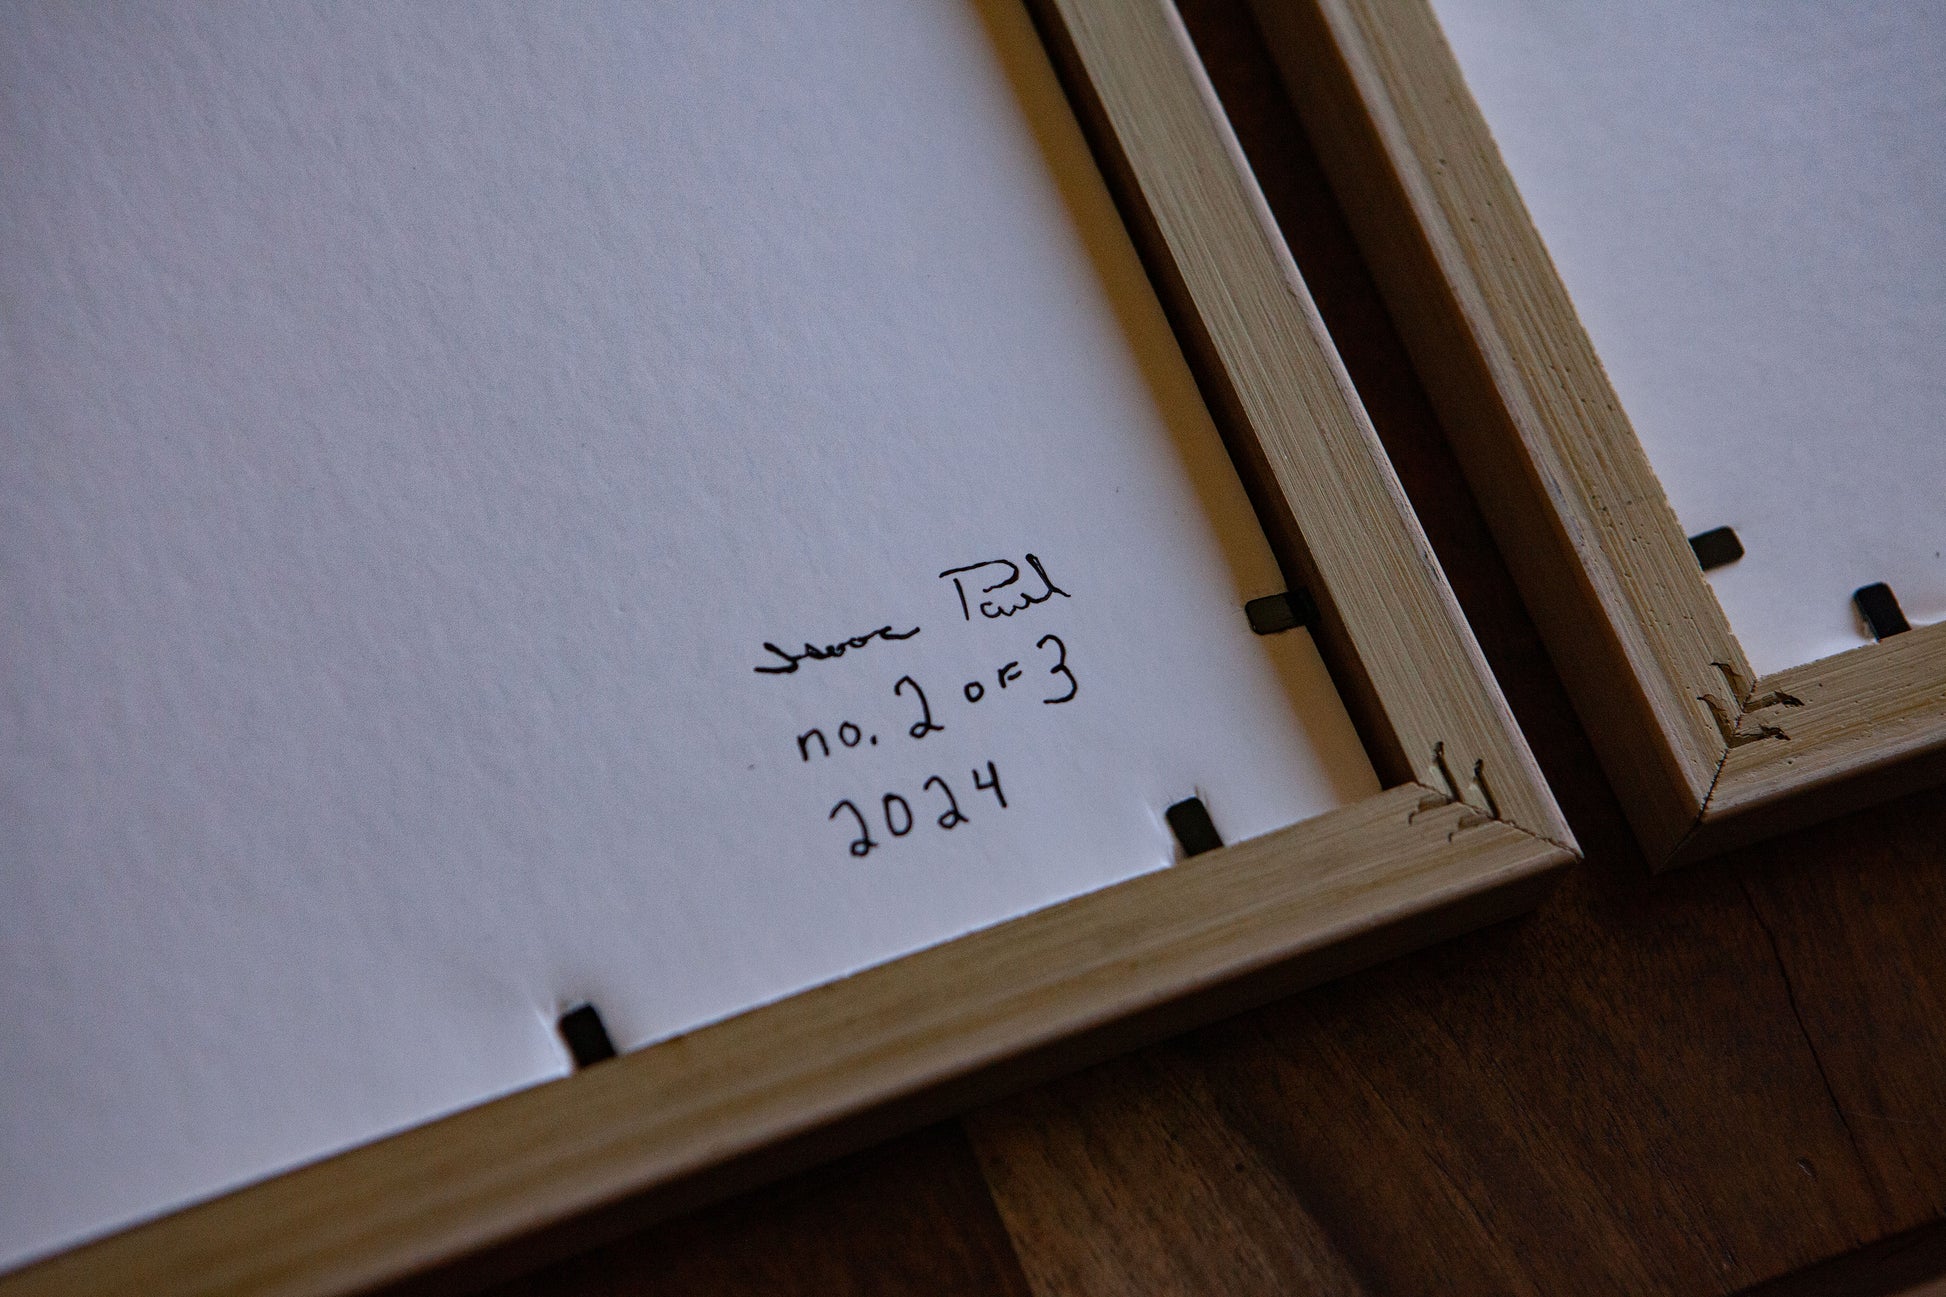 Isaac Paul
no. 2 OF 3
2024